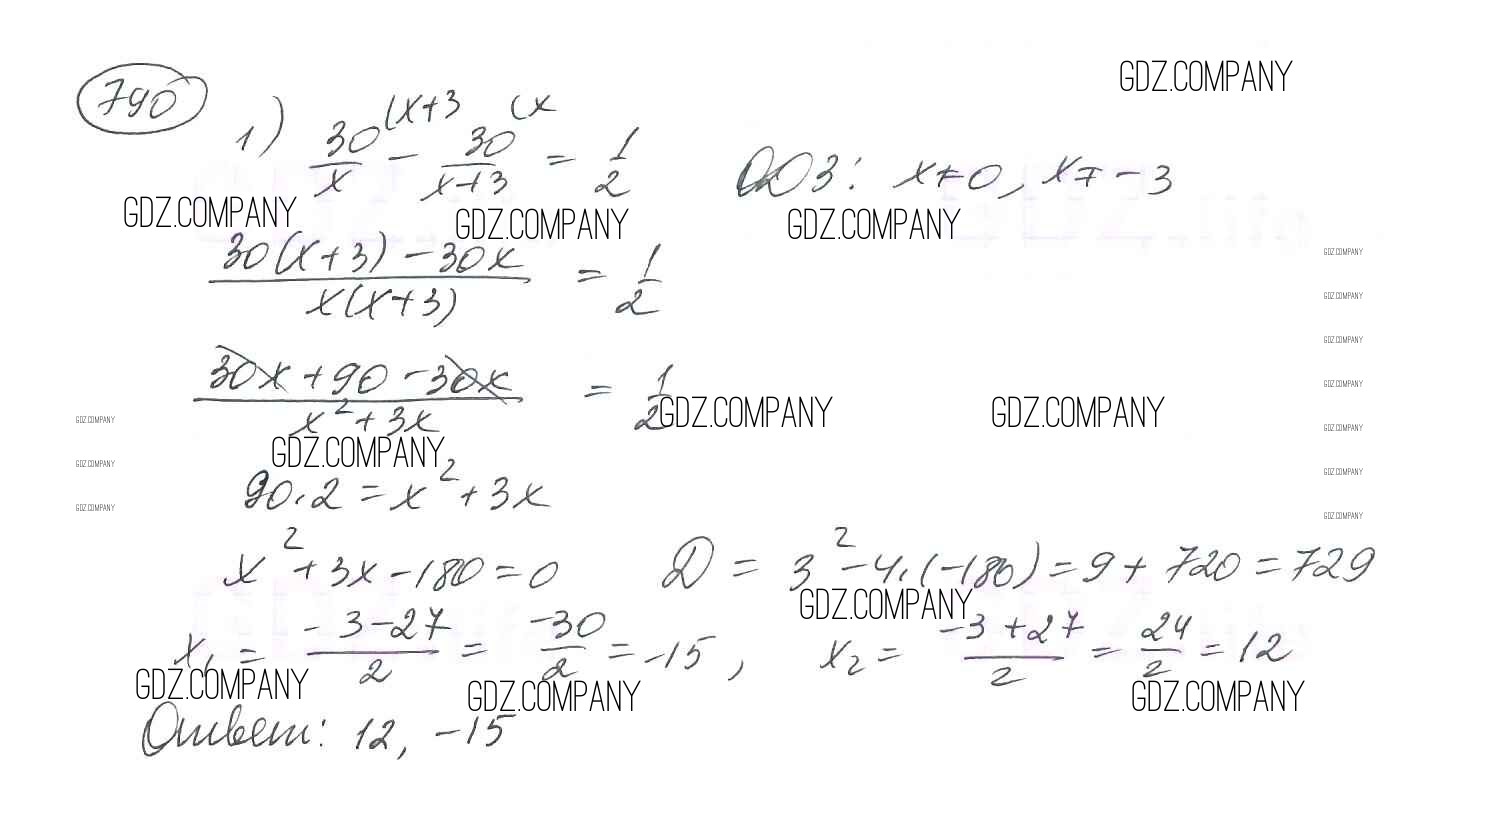 GDZ.COMPANY
790
1) 30/x (x+3 - 30/(x+3) (x = 1/2 ОДЗ: x≠0, x≠-3
GDZ.COMPANY GDZ.COMPANY GDZ.COMPANY
(30(x+3)-30x)/(x(x+3)) = 1/2
GDZ.COMPANY
GDZ.COMPANY
GDZ.COMPANY
(30x+90-30x)/(x²+3x) = 1/2
GDZ.COMPANY
GDZ.COMPANY GDZ.COMPANY
GDZ.COMPANY GDZ.COMPANY
GDZ.COMPANY
GDZ.COMPANY GDZ.COMPANY
90·2 = x²+3x
GDZ.COMPANY GDZ.COMPANY
x²+3x-180=0 D = 3²-4·(-180)=9+720=729
GDZ.COMPANY
x₁ = (-3-27)/2 = -30/2 = -15, x₂ = (-3+27)/2 = 24/2 = 12
GDZ.COMPANY GDZ.COMPANY GDZ.COMPANY
Ответ: 12, -15